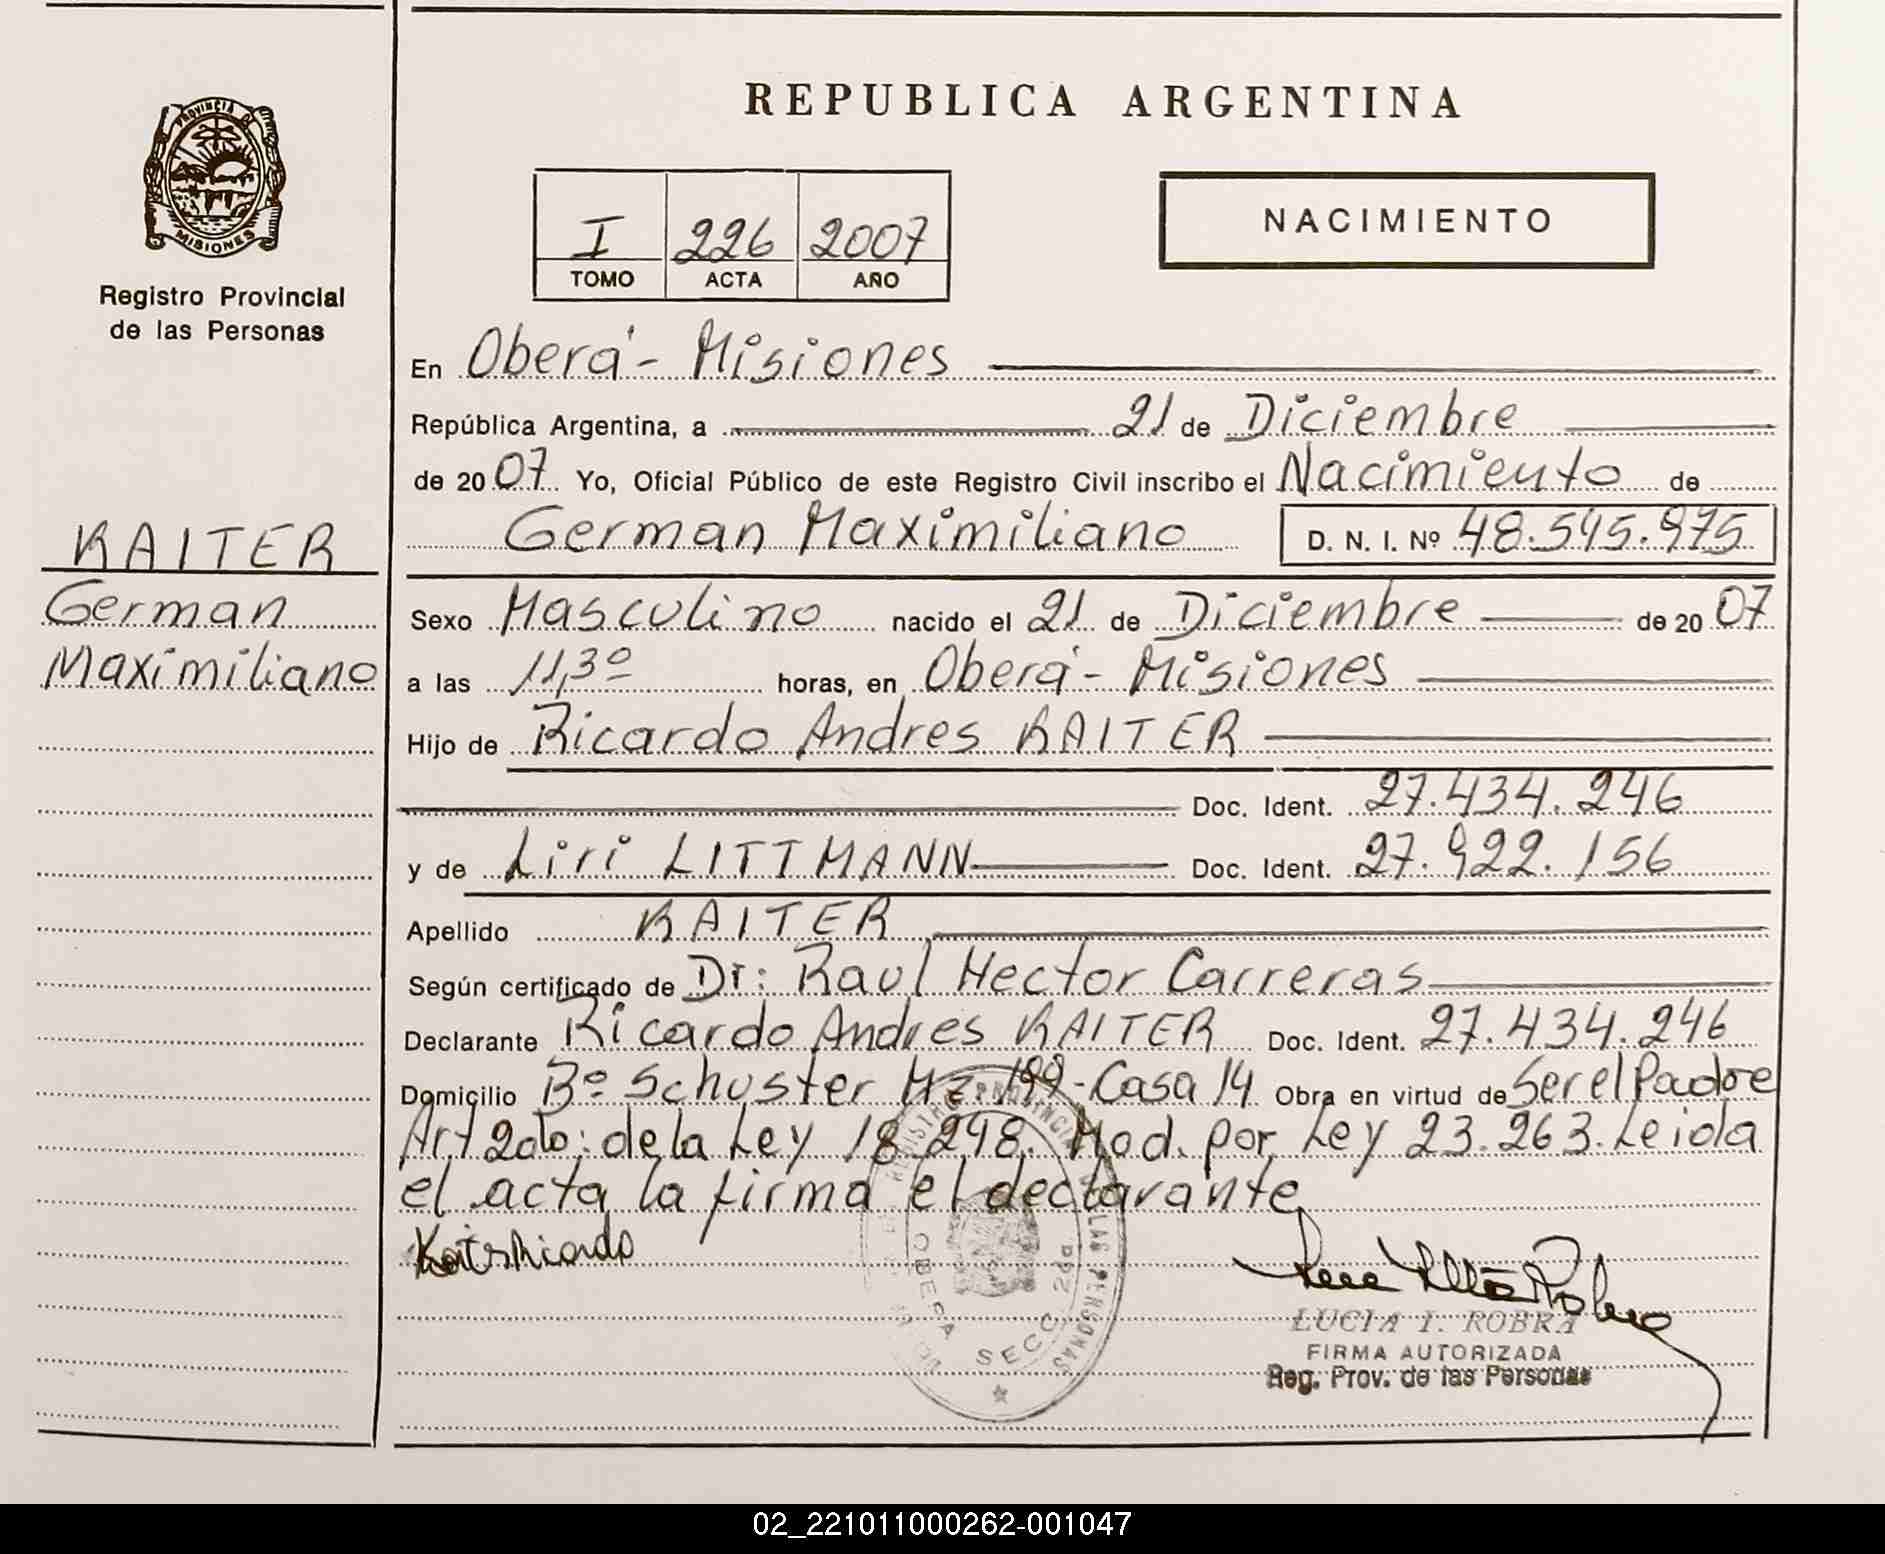 REPUBLICA ARGENTINA
PROVINCIA DE
MISIONES
Registro Provincial
de las Personas
I 226 2007
TOMO ACTA AÑO
NACIMIENTO
En Oberá - Misiones
República Argentina, a 21 de Diciembre
de 2007 Yo, Oficial Público de este Registro Civil inscribo el Nacimiento de
German Maximiliano D. N. I. Nº 48.545.975
KAITER
German
Maximiliano
Sexo Masculino nacido el 21 de Diciembre de 2007
a las 11,30 horas, en Oberá - Misiones
Hijo de Ricardo Andres KAITER
Doc. Ident. 27.434.246
y de Liri LITTMANN Doc. Ident. 27.922.156
Apellido KAITER
Según certificado de Dr: Raul Hector Carreras
Declarante Ricardo Andres KAITER Doc. Ident. 27.434.246
Domicilio Bº Schuster Mz 199 - Casa 14 Obra en virtud de Ser el Padre
Art 2do: de la Ley 18.248. Mod. por Ley 23.263. Leida
el acta la firma el declarante
REGISTRO PROVINCIAL DE LAS PERSONAS
OBERA SECC. 2da
LUCIA I. ROBRA
FIRMA AUTORIZADA
Reg. Prov. de las Personas
02_221011000262-001047